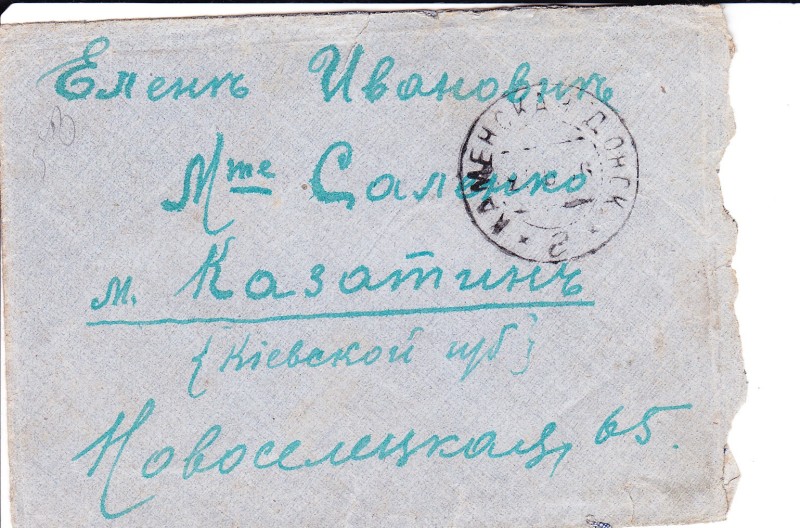 Еленѣ Ивановнѣ
Mme Саленко
м. Казатинъ
(Кіевской губ)
Новоселецкая, 65.
КАМЕНСКАЯ ДОНСК * 2 *